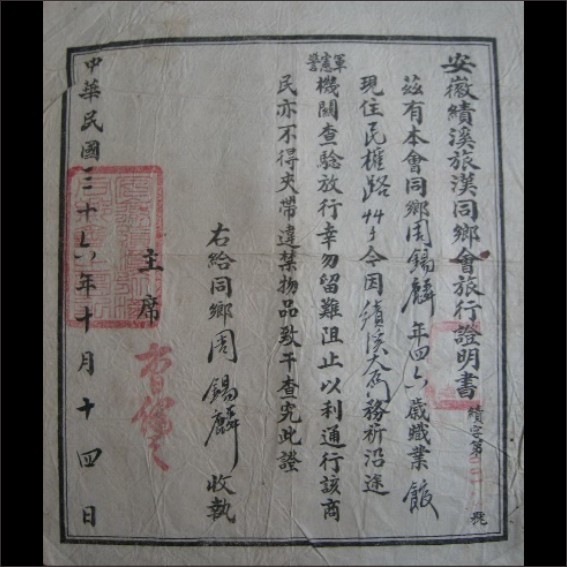 安徽績溪旅漢同鄉會旅行證明書
績字第 號
茲有本會同鄉周錫麟年四六歲職業館
現住民權路44号今因績溪大 務祈沿途
軍憲警機關查驗放行幸勿留難阻止以利通行該商
民亦不得夾帶違禁物品致干查究此證
右給同鄉周錫麟收執
主席
中華民國三十六年十月十四日